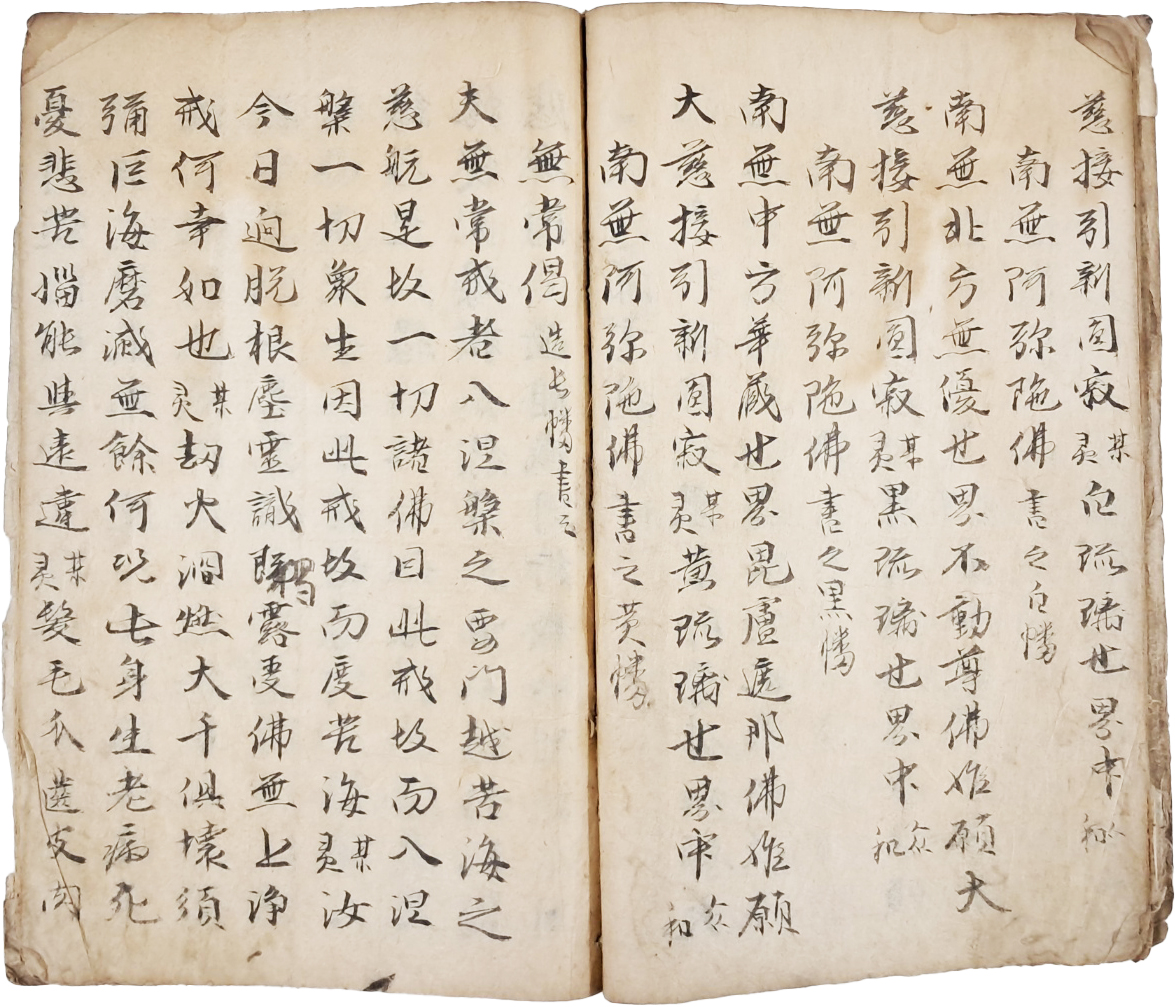 慈接引新圓寂某灵白琉璃世界中众和
南無阿弥陁佛書之白幡
南無北方無優世界不動尊佛惟願大
慈接引新圓寂某灵黑琉璃世界中众和
南無阿弥陁佛書之黑幡
南無中方華蔵世界毘盧遮那佛惟願
大慈接引新圓寂某灵黄琉璃世界中众和
南無阿弥陁佛書之黄幡
無常偈造长幡書之
夫無常戒者入涅槃之要門越苦海之
慈航是故一切諸佛因此戒故而入涅
槃一切衆生因此戒故而度苦海某灵汝
今日逈脱根塵靈識獨露受佛無上浄
戒何幸如也某灵劫火洞燃大千俱壊須
彌巨海磨滅無餘何况此身生老病死
憂悲苦惱能與遠違某灵髮毛爪
皮肉